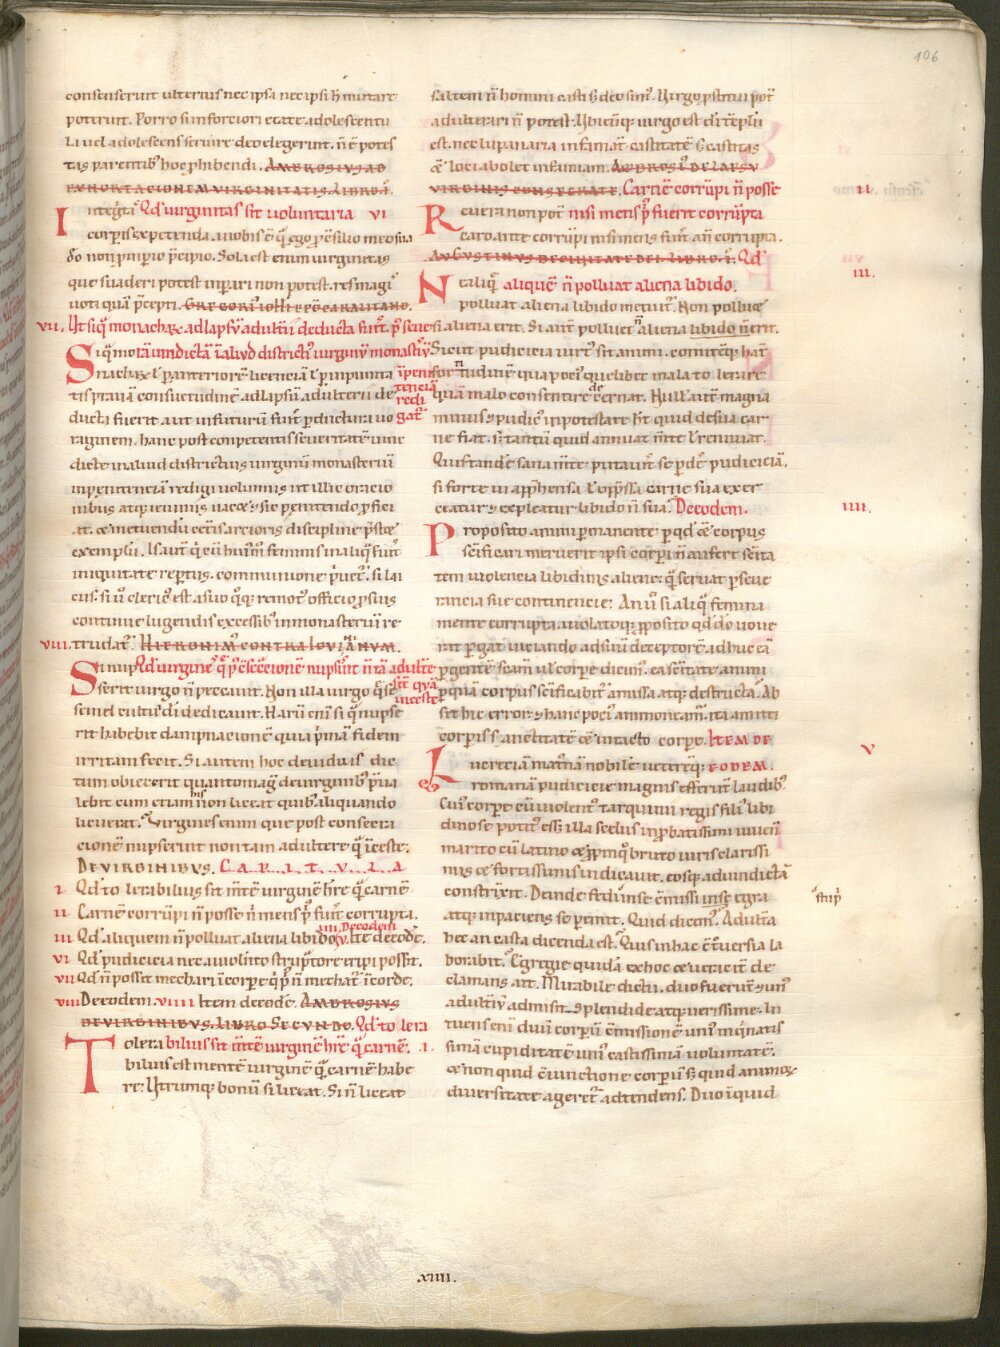 106
consenserunt ulterius nec ipsa nec ipsi h̄ mutare
poterunt. Porro si in forciori etate adolescentu
la vel adolescens servire deo elegerint. n̄ ē potes
tas parentib᷒ hoc ꝓhibendi. AMBROSIVS AD
EXHORTACIONEM VIRGINITATIS. LIBRO. I.
Integ̅ta Qđ virginitas sit voluntaria VI
corporis expetenda. a vobis ē q̄ ego ꝓ ēsilio meo sua
deo non ꝓ imperio p̄cipio. Sola est enim virginitas
que suaderi potest imꝑari non potest. res magi᷒
voti quā p̄cepti. GREGORI᷒ IOH̄I EP̄O CARALITANO.
VII. Ut siq̄ monachar̅ ad lapsū adultīi deducta fuīt. p᷒ seve
Siq̄ mo rā vindictā ī aliud districti᷒ virginū monastīū
nachar̅ ꝉ ꝑ anteriorē licenciā ꝉ ꝑ inpunita īpeni
tis pravā consuetudinē ad lapsū adulterii de tenciā redi
ducta fuerit aut in futurū fuīt ꝑducta in vo gat᷒
raginem. hanc post conpetentis severitatē vin
dicte in aliud districtius virginū monasteriū
in penitenciā redigi volumus ut illic oracio
nibus atq; ieiuniis vacet. ⁊ sic penitendo ꝓficiat
⁊ metuendū cet̄is artioris discipline p̄stet
exemplū. Is aut̄ q̄ cū hui᷒m̄ feminis in aliq̄ fuīt
iniquitate reꝑtus. communione p̄vet᷒. si lai
cus. si v̄ cleric᷒ est a suo q̄q; remot᷒ officio ꝓ suis
continue lugendis excessib᷒ in monasteriū re
VIII. trudat᷒. HIERONIM᷒ CONTRA IOVINIANVM.
Si nup Qđ virgīe᷒ q̄ p᷒ ꝯsecīonē nupsīint n̄ tā adulte
serit virgo n̄ peccavit. Non illa virgo q̄ se sīt quā
semel cultui di dedicavit. Harū enī si q̄ nupse inceste
rit habebit dampnacionē quia p̄mā fidem
irritam fecit. Si autem hoc de viduis dic
tum obiecerit quanto mag̅ de virginib᷒ p̄va
lebit cum etiam his non liceat quib᷒ aliquando
licuerat. Virgines enim que post consecra
cionē nupserint non tam adultere q̄ inceste.
DE VIRGINIBVS. CAPITVLA
I. Qđ tolerabilius sit m̄te virginē h̄re q̄ carnē
II. Carnē corrūpi n̄ posse n̄ mens p̄ fuīt corrupta.
III. Qđ aliquem n̄ polluat aliena libido. IIII. De eodem. V. Ite de eodē.
VI. Qđ pudicicia nec a violīto strup̄tore eripi possit.
VII. Qđ n̄ possit mechari ī corꝑe q̄ p̄ n̄ mechat᷒ ī corde.
VIII. De eodem. VIIII. Item de eodē. AMBROSIVS
DE VIRGINIBVS. LIBRO SECVNDO. Qđ tolera
Tolera bilius sit m̄te virginē h̄re q̄ carnē. I.
bilius est mentē virginē q̄ carnē habe
re. Utrumq; bonū si liceat. Si n̄ liceat
saltem n̄ homini casti s; deo sim᷒. Virgo ꝓstitui pot̄
adulterari n̄ potest. Ubicūq; virgo est dī tēplū
est. nec lupanaria infamāt castitatē s; castitas
ē loci abolet infamiam. AMBROSI᷒ DE LAPSV
VIRGINIS CONSECRATE. Carnē corrūpi n̄ posse II.
Revera non pot̄ nisi mens p̄ fuerit corrūpta
caro ante corrūpi nisi mens fuīt an̄ corrupta.
AVGVSTINVS DE CIVITATE DEI LIBRO. I. Qđ
III.
Ne aliq̄ aliquē n̄ polluat aliena libido.
polluat aliena libido metuit᷒. Non polluet
si aliena erit. Si aut̄ polluet n̄ aliena libido n̄ erit.
Sicut pudicicia virt᷒ sit animi. comitēq; hāt
fortitudinē qua poci᷒ quelibet mala tolerare
quā malo consentire decernat. Null᷒ aut̄ magna
nimus ⁊ pudic᷒ in potestate h̄t quid de sua car
ne fiat. s; tantū quid annuat m̄te ꝉ renuat.
Quis tandē sana m̄te putav̄it se ꝑdē pudiciciā.
si forte in app̄hensa ꝉ op̄ssa carne sua exer
ceatur ⁊ expleatur libido n̄ sua. De eodem. IIII.
Proposito animi ꝑmanente ꝑ qđ ⁊ corpus
sc̄ificari meruerit ipsi corꝑi n̄ aufert sc̄ita
tem violencia libidinis aliene. q̄ servat ꝑseve
rancia sue continencie. An v̄ si aliq̄ femina
mente corrupta violatoq; ꝓposito qđ do vove
rit ꝑgat viciando ad suū deceptorē adhuc eā
ꝑgente sc̄am ul᷒ corꝑe dicim᷒. ea sc̄itate animi
ꝑ quā corpus sc̄ificabit᷒ amissa atq; destructa. Ab
sit hic error. ⁊ hanc poci᷒ ammoneam᷒. ita amitti
corꝑis sanctitatē ⁊ intacto corpe. ITEM DE
EODEM. V
Lucreciam matronā nobilē veterēq;
romanā pudicicie magnis efferūt laudib᷒.
Cui᷒ corꝑe cū violent̄ tarquini regis fili᷒ libi
dinose potit᷒ ess; illa scelus inꝓbatissimi iuvenī
marito cū latino ⁊ ꝓpinq᷒ bruto viris clarissi
mis ⁊ fortissimis indicavit. eosq; ad vindictā
constrīxit. Deinde fedi in se ēmissi inse egra strup̄
atq; inpaciens se ꝑemit. Quid dicem᷒. Adultā
hec an casta dicenda est. Quis in hac ētversia la
borabit. Egregie quidā ex hoc ⁊ veracit̄ de
clamans ait. Mirabile dictu. duo fuerūt ⁊ un᷒
adultiū admisit. Splendide atq; verissime. In
tuens enī duū corporū ēmissionē uni᷒ inq̄natis
simā cupiditatē uni᷒ castissimā voluntatē.
⁊ non quid ēiunctione corporū s; quid animor̄
diversitate ageret᷒ adtendens. Duo īquid
XIIII.